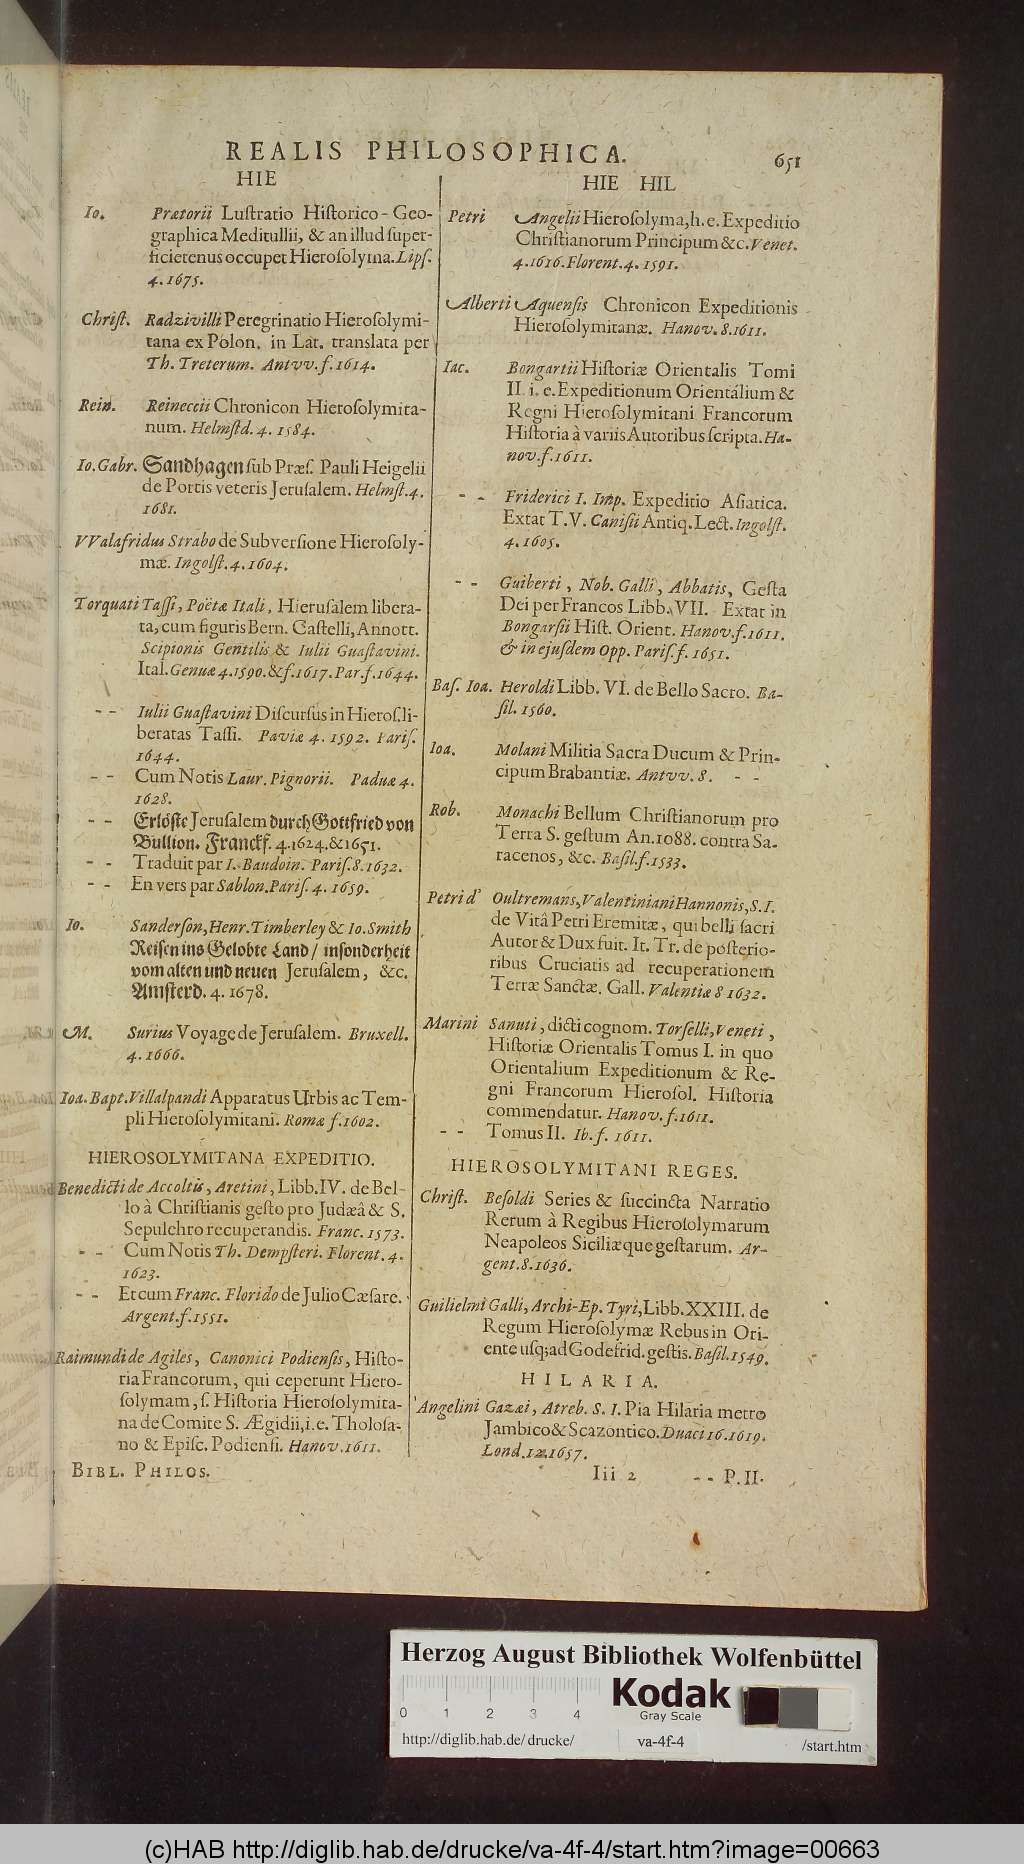 REALIS PHILOSOPHICA. 651
HIE
Io. Prætorii Luſtratio Hiſtorico-Geo-
graphica Meditullii, & an illud ſuper-
ficietenus occupet Hieroſolyma. Lipſ.
4. 1675.
Chriſt. Radzivilli Peregrinatio Hieroſolymi-
tana ex Polon. in Lat. translata per
Th. Treterum. Antvv. f. 1614.
Rein. Reineccii Chronicon Hieroſolymita-
num. Helmſtd. 4. 1584.
Io. Gabr. Sandhagen ſub Præſ. Pauli Heigelii
de Portis veteris Jeruſalem. Helmſt. 4.
1681.
VValafridus Strabo de Subverſione Hieroſoly-
mæ. Ingolſt. 4. 1604.
Torquati Taſſi, Poëtæ Itali, Hieruſalem libera-
ta, cum figuris Bern. Caſtelli, Annott.
Scipionis Gentilis & Iulii Guaſtavini.
Ital. Genuæ 4. 1590. & f. 1617. Par. f. 1644.
- - Iulii Guaſtavini Diſcurſus in Hieroſ. li-
beratas Taſſi. Paviæ 4. 1592. Pariſ.
1644.
- - Cum Notis Laur. Pignorii. Paduæ 4.
1628.
- - Erlöſte Jeruſalem durch Gottfried von
Bullion. Franckf. 4. 1624. & 1651.
- - Traduit par I. Baudoin. Pariſ. 8. 1632.
- - En vers par Sablon. Pariſ. 4. 1659.
Io. Sanderſon, Henr. Timberley & Io. Smith
Reiſen ins Gelobte Land / inſonderheit
vom alten und neuen Jeruſalem, &c.
Amſterd. 4. 1678.
M. Surius Voyage de Jeruſalem. Bruxell.
4. 1666.
Ioa. Bapt. Villalpandi Apparatus Urbis ac Tem-
pli Hieroſolymitani. Romæ f. 1602.
HIEROSOLYMITANA EXPEDITIO.
Benedicti de Accoltis, Aretini, Libb. IV. de Bel-
lo à Chriſtianis geſto pro Judæâ & S.
Sepulchro recuperandis. Franc. 1573.
- - Cum Notis Th. Dempſteri. Florent. 4.
1623.
- - Et cum Franc. Florido de Julio Cæſare.
Argent. f. 1551.
Raimundi de Agiles, Canonici Podienſis, Hiſto-
ria Francorum, qui ceperunt Hiero-
ſolymam, ſ. Hiſtoria Hieroſolymita-
na de Comite S. Ægidii, i. e. Tholoſa-
no & Epiſc. Podienſi. Hanov. 1611.
BIBL. PHILOS.
HIE HIL
Petri Angelii Hieroſolyma, h. e. Expeditio
Chriſtianorum Principum &c. Venet.
4. 1616. Florent. 4. 1591.
Alberti Aquenſis Chronicon Expeditionis
Hieroſolymitanæ. Hanov. 8. 1611.
Iac. Bongartii Hiſtoriæ Orientalis Tomi
II. i. e. Expeditionum Orientalium &
Regni Hieroſolymitani Francorum
Hiſtoria à variis Autoribus ſcripta. Ha-
nov. f. 1611.
- - Friderici I. Imp. Expeditio Aſiatica.
Extat T. V. Caniſii Antiq. Lect. Ingolſt.
4. 1605.
- - Guiberti, Nob. Galli, Abbatis, Geſta
Dei per Francos Libb. VII. Extat in
Bongarſii Hiſt. Orient. Hanov. f. 1611.
& in ejuſdem Opp. Pariſ. f. 1651.
Baſ. Ioa. Heroldi Libb. VI. de Bello Sacro. Ba-
ſil. 1560.
Ioa. Molani Militia Sacra Ducum & Prin-
cipum Brabantiæ. Antvv. 8. - -
Rob. Monachi Bellum Chriſtianorum pro
Terra S. geſtum An. 1088. contra Sa-
racenos, &c. Baſil. f. 1533.
Petri d' Oultremans, Valentiniani Hannonis, S. I.
de Vitâ Petri Eremitæ, qui belli ſacri
Autor & Dux fuit. It. Tr. de poſterio-
ribus Cruciatis ad recuperationem
Terræ Sanctæ. Gall. Valentiæ 8 1632.
Marini Sanuti, dicti cognom. Torſelli, Veneti,
Hiſtoriæ Orientalis Tomus I. in quo
Orientalium Expeditionum & Re-
gni Francorum Hieroſol. Hiſtoria
commendatur. Hanov. f. 1611.
- - Tomus II. Ib. f. 1611.
HIEROSOLYMITANI REGES.
Chriſt. Beſoldi Series & ſuccincta Narratio
Rerum à Regibus Hieroſolymarum
Neapoleos Siciliæque geſtarum. Ar-
gent. 8. 1636.
Guilielmi Galli, Archi-Ep. Tyri, Libb. XXIII. de
Regum Hieroſolymæ Rebus in Ori-
ente uſq; ad Godefrid. geſtis. Baſil. 1549.
HILARIA.
Angelini Gazæi, Atreb. S. I. Pia Hilaria metro
Jambico & Scazontico. Duaci 16. 1619.
Lond. 12. 1657.
Iii 2 - - P. II.
Herzog August Bibliothek Wolfenbüttel
0 1 2 3 4
Kodak
Gray Scale
http://diglib.hab.de/drucke/ va-4f-4 /start.htm
(c)HAB http://diglib.hab.de/drucke/va-4f-4/start.htm?image=00663